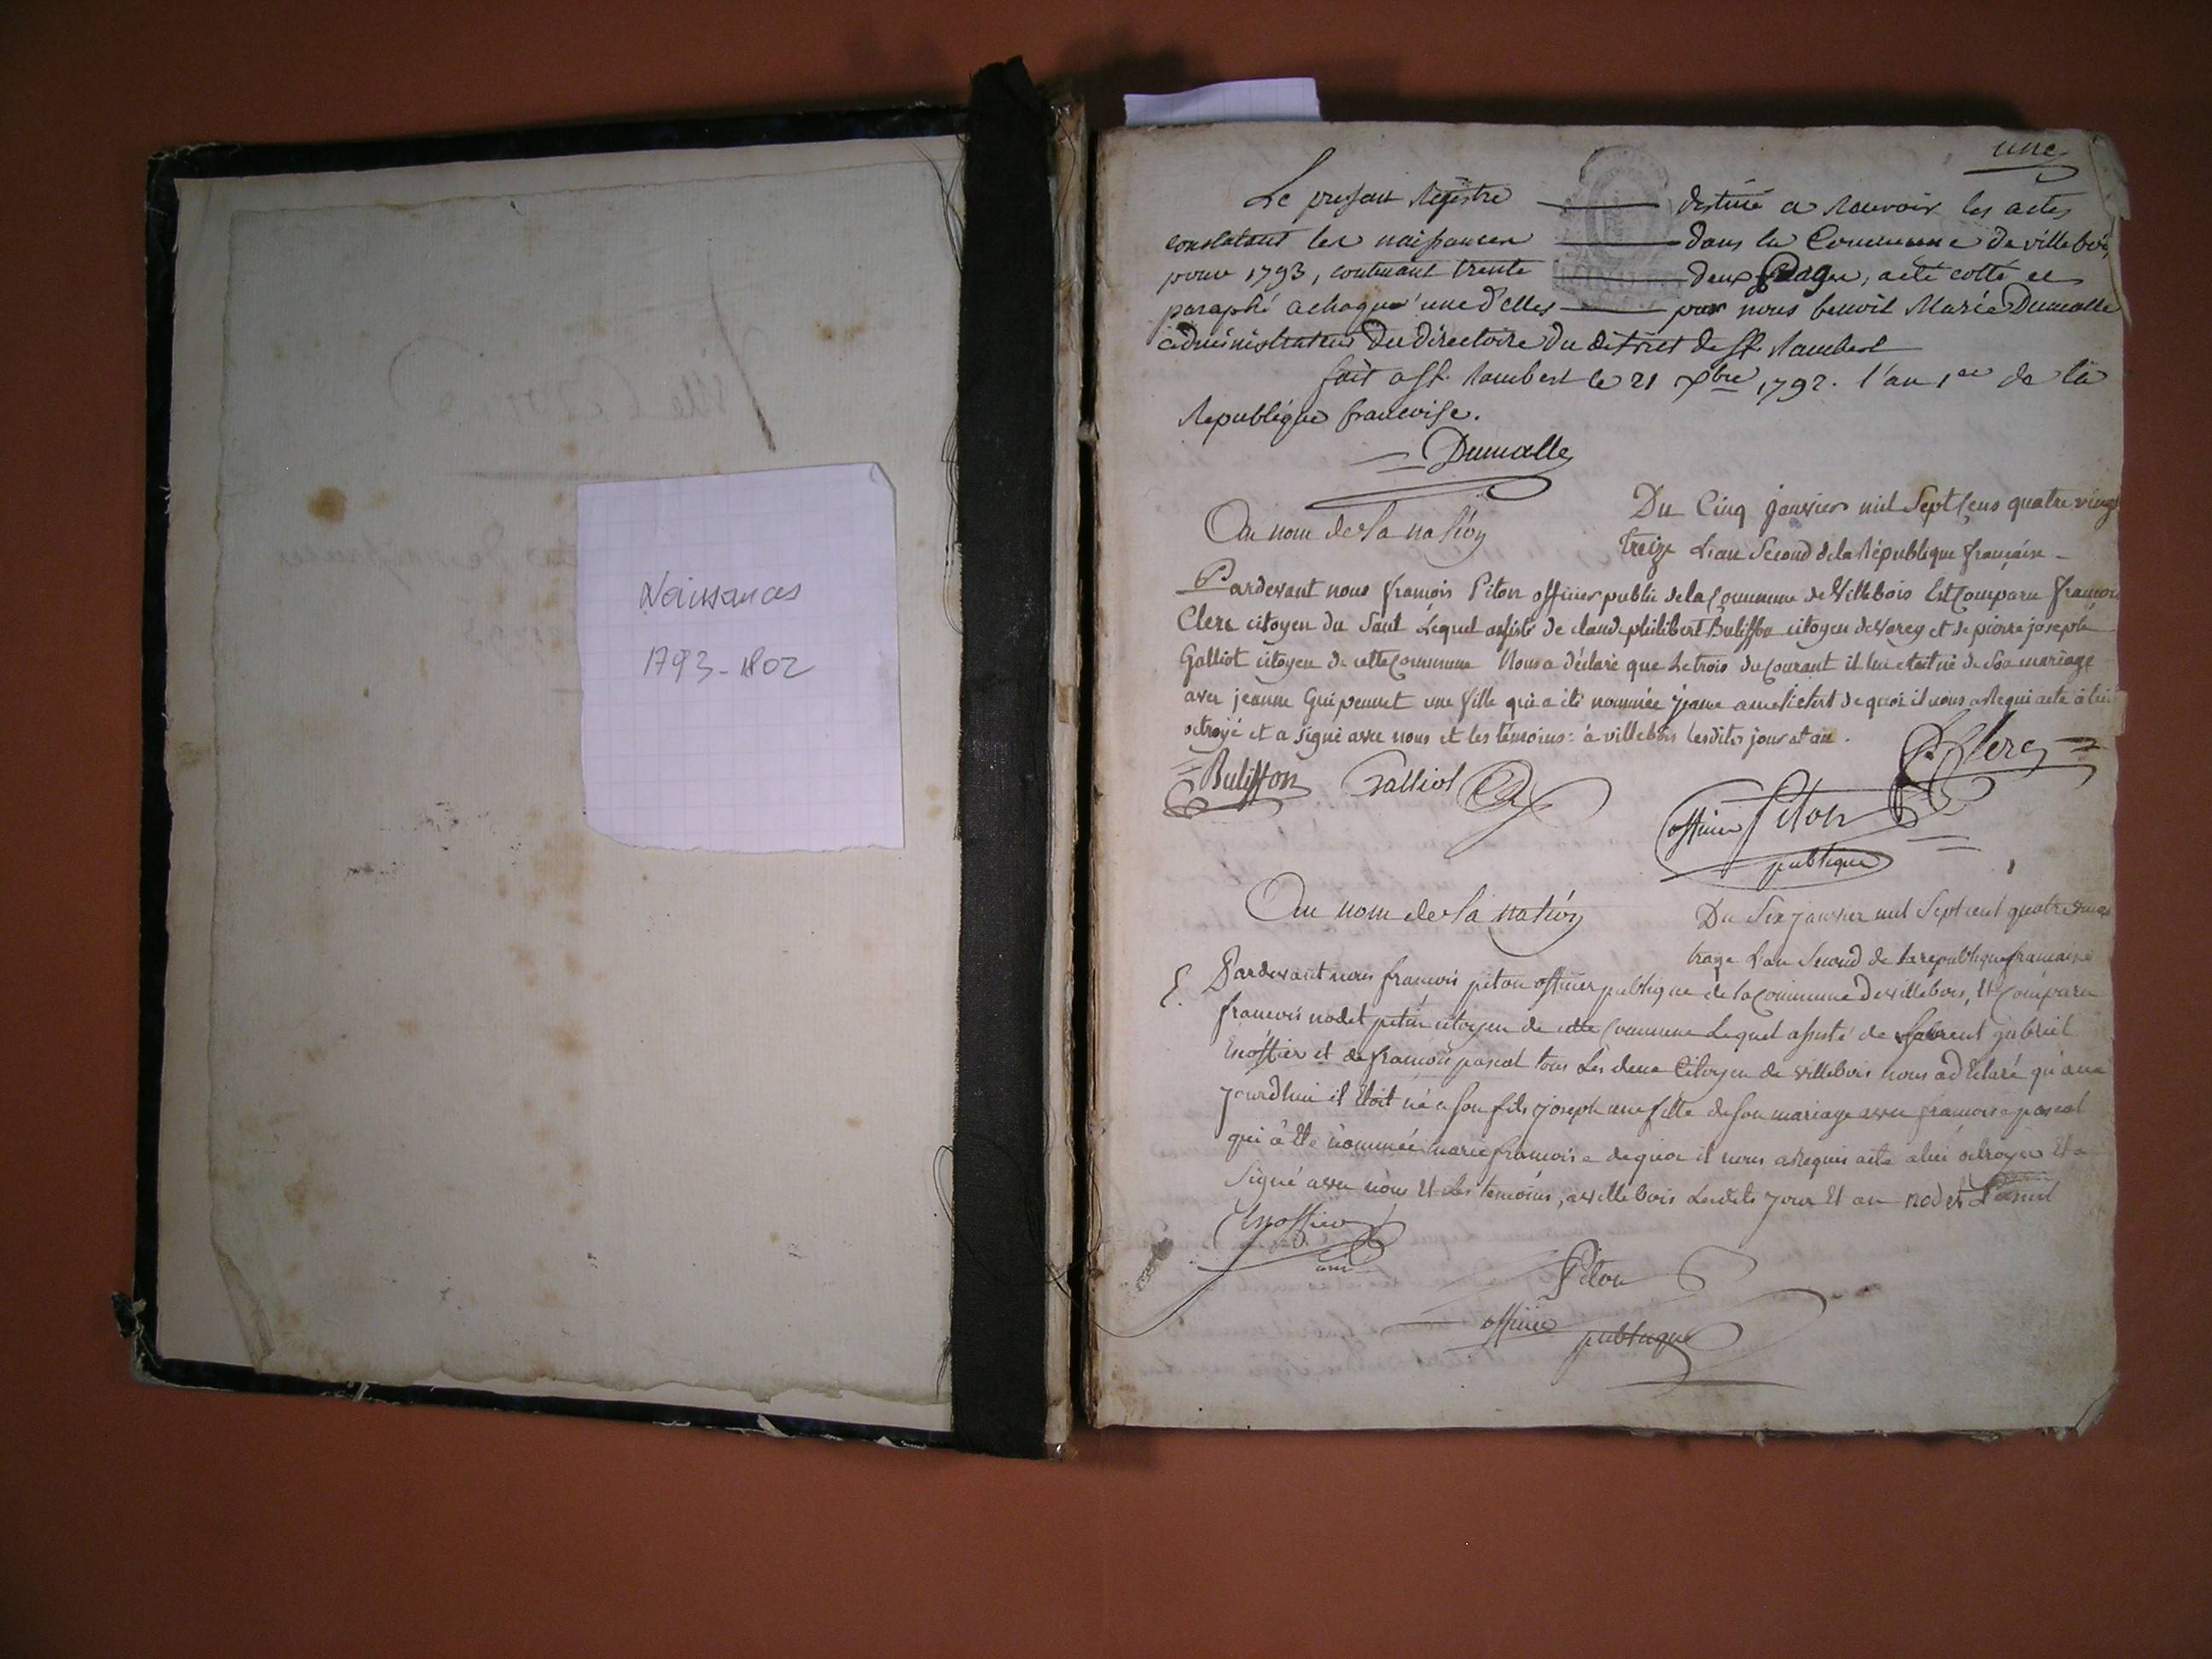 Naissances
1793-1802
une
Le present Registre destiné a Recevoir les actes
constatant les naissances dans la Commune de villebois
pour 1793, contenant trente deux Pages, a été cotté et
paraphé a chaque une d'elles par nous benoit Marie Dumalle
administrateur Du directoire Du district de St. Rambert
fait a St. Rambert le 21 xbre 1792. l'an 1er de la
Republique francoise.
Dumalle
Au nom de la nation
Du Cinq janvier mil Sept Cens quatre vingt
treize L'an Second de la République française
Pardevant nous françois Piton officier public de la Commune de Villebois Est Comparu françois
Clerc citoyen du Sault Lequel assisté de claude philibert Buliffon citoyen de Varey et de pierre joseph
Galliot citoyen de cette Commune Nous a déclaré que Le trois du Courant il lui etait né de Son mariage
avec jeanne Guipennet une fille qui a été nommée jeanne de quoi il nous a Requi acte à lui
octroyé et a signé avec nous et les témoins : à villebois lesdits jour et an.
Buliffon Galliot Clerc
officier Piton
publique
Au nom de la nation
Du Six janvier mil Sept cent quatre vingt
traze L'an Second de la republique francaise
Pardevant nous francois piton officier publique de la Commune de villebois, Et Comparu
francois nodet petin citoyen de cette Commune Lequel assisté de Laurent gabriel
Enoffier et de francois pascal tous Les deux Citoyen de villebois nous a déClaré qu'aux
jourdhui il Etoit né a Son fils joseph une fille de Son mariage avec francoise pascal
qui à Eté nommée marie francoise de quoi il nous a Requis acte a lui octroyer Et a
Signé avec nous Et Les temoins, a villebois Lesdits jour Et an nodet Pascal
Enoffier
Piton
officier publique